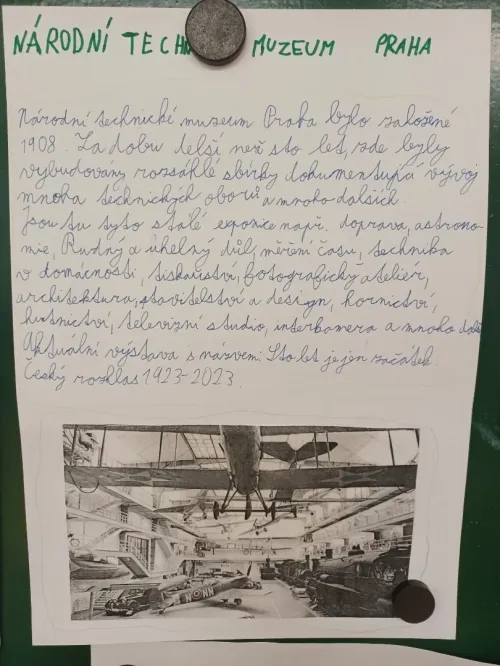 NÁRODNÍ TECHN MUZEUM PRAHA
Národní technické muzeum Praha bylo založené
1908. Za dobu delší než sto let, zde byly
vybudovány rozsáhlé sbírky dokumentující vývoj
mnoha technických oborů a mnoho dalších.
Jsou tu tyto stálé expozice např. doprava, astrono-
mie, Rudný a úhelný důl, měření času, technika
v domácnosti, tiskařství, fotografický atelier,
architektura, stavitelství a design, hornictví,
hutnictví, televizní studio, interkamera a mnoho další
Aktuální výstava s názvem: Sto let je jen začátek.
Český rozhlas 1923-2023.